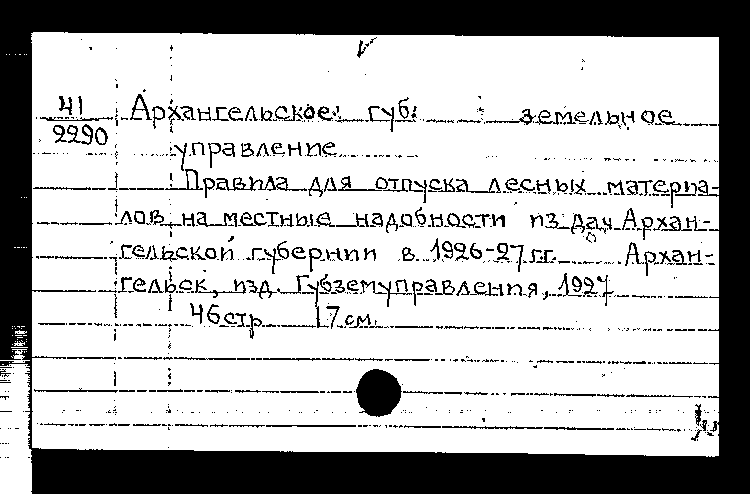 41
2290
Архангельское губ. земельное
управление
Правила для отпуска лесных материа-
лов на местные надобности из дач Архан-
гельской губернии в 1926-27 гг. Архан-
гельск, изд. Губземуправления, 1927
46 стр 17 см.